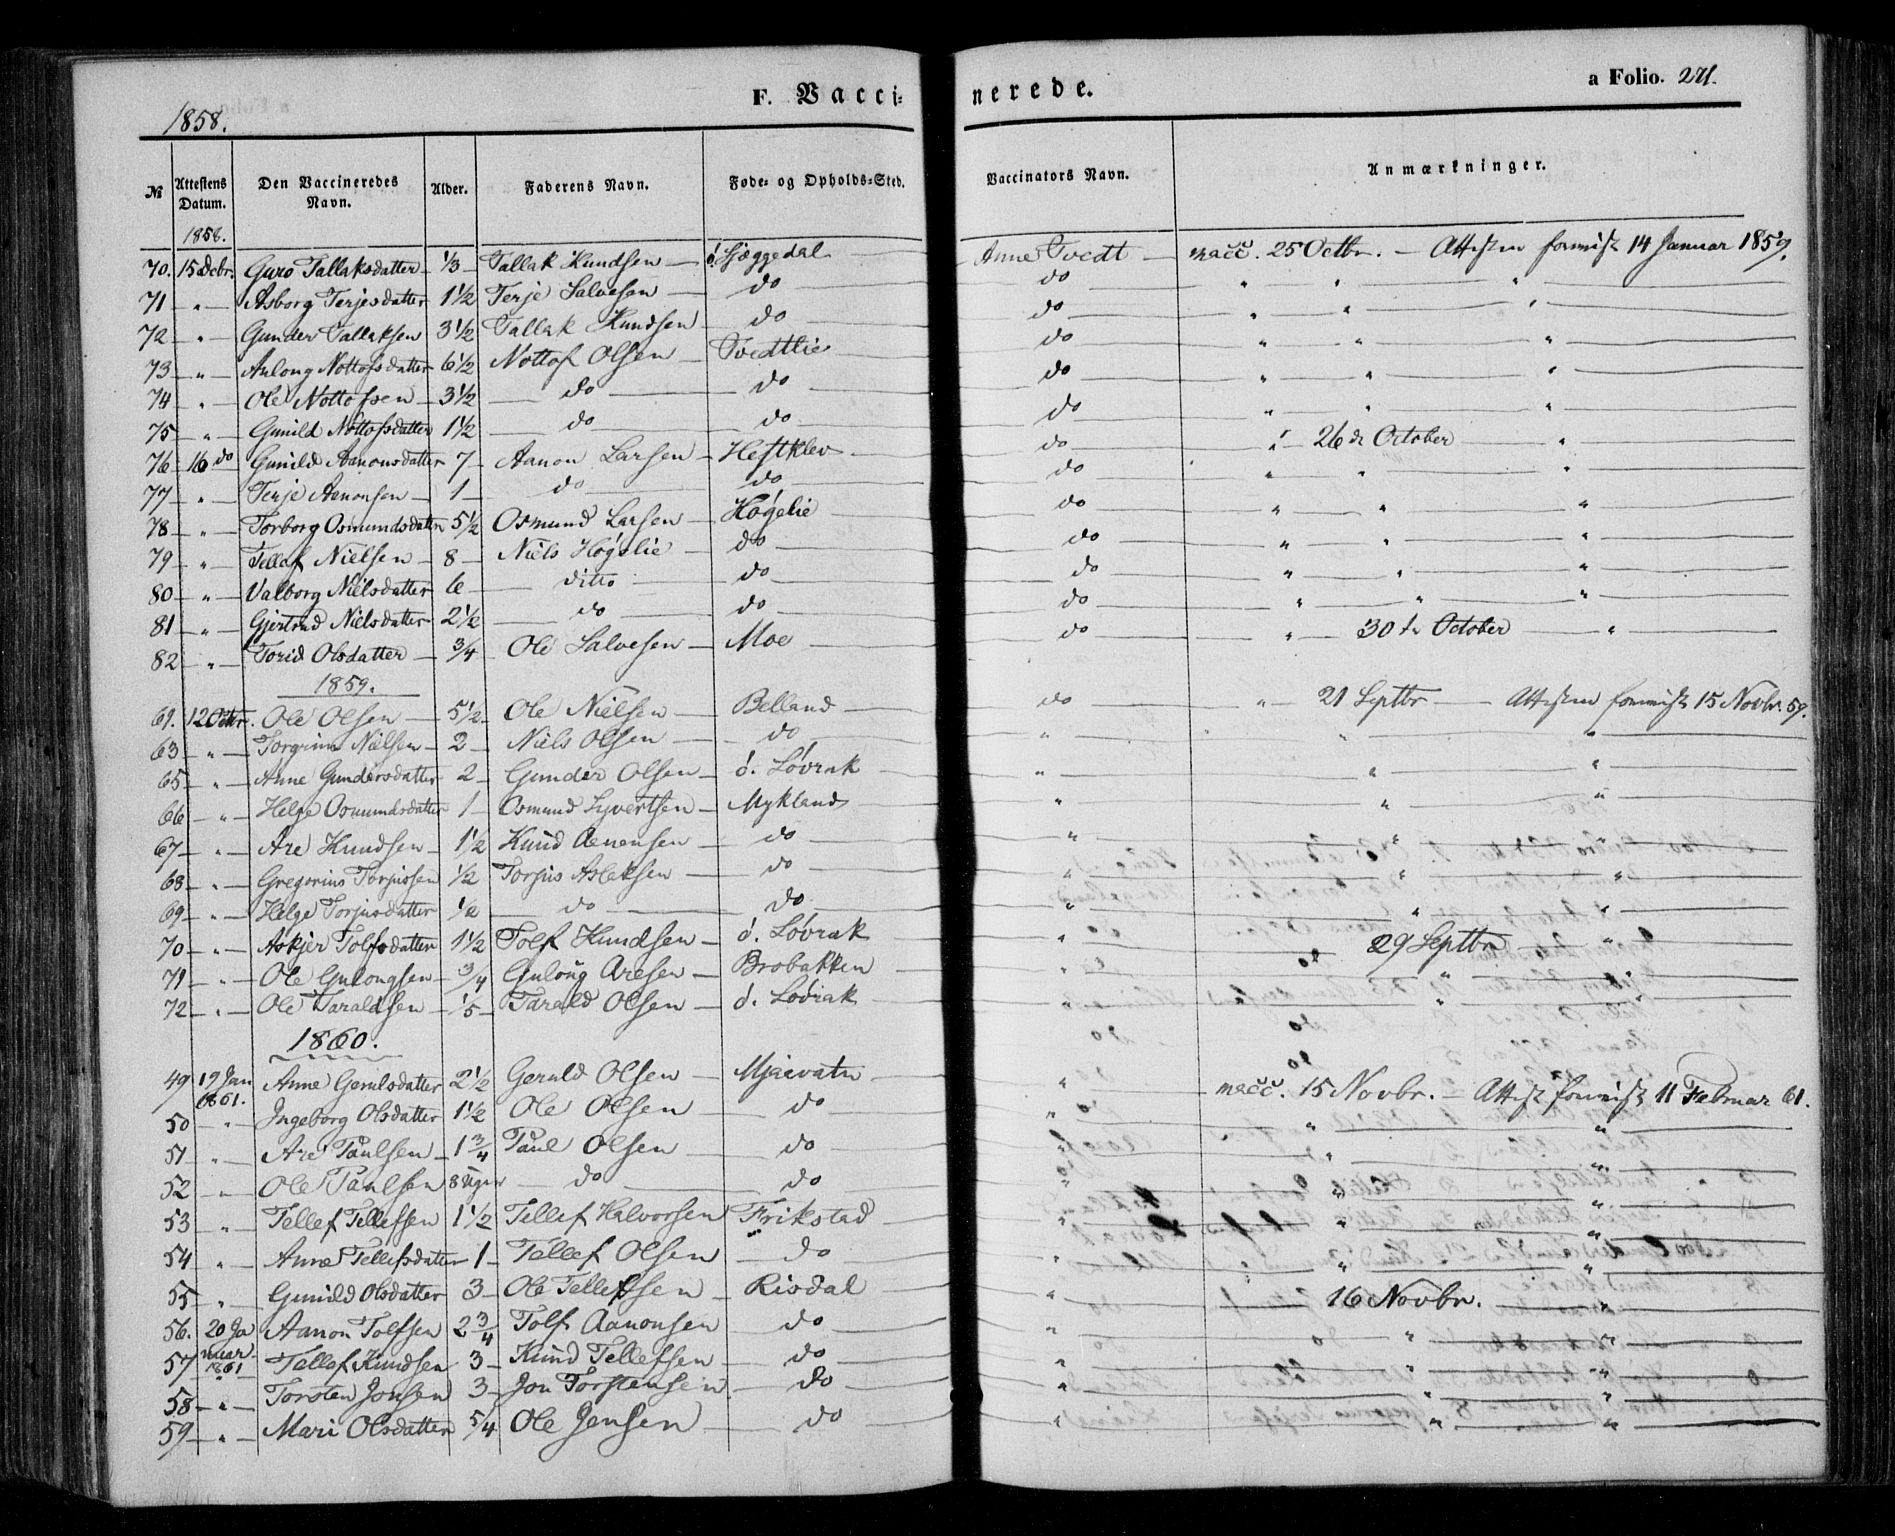 1858. F. Vacci- nerede. a Folio. 271.
№ Attestens Datum. Den Vaccineredes Navn. Alder. Faderens Navn. Føde- og Opholds-Sted. Vaccinators Navn. Anmærkninger.
1858.
70. 15 Decbr. Guro Tallaksdatter 1/3 Tallak Knudsen ö. Sjæggedal Anne Tvedt vacc. 25 Octbr. Attesten 14 Januar 1859.
71 " Asborg Terjesdatter 1 1/2 Terje Salvesen do do " " "
72 " Gunder Tallaksen 3 1/2 Tallak Knudsen do do " " "
73 " Aulong Nottofsdatter 6 1/2 Nottof Olsen Tvedtlie do " " "
74 " Ole Nottofsen 3 1/2 do do do " " "
75 " Gunild Nottofsdatter 1 1/2 do do do " " "
76 16 do Gunild Aanonsdatter 7 Aanon Larsen Heftklev do " 26 de October "
77 " Terje Aanonsen 1 do do do " " "
78 " Torborg Osmundsdatter 5 1/2 Osmund Larsen Høgelie do " " "
79 " Tellef Nielsen 8 Niels Høgelie do do " " "
80 " Valborg Nielsdatter 6 ditto do do " " "
81 " Gjertrud Nielsdatter 2 1/2 do do do " " "
82 " Torid Olsdatter 3/4 Ole Salvesen Moe do " 30 te October "
1859.
61. 12 Octbr. Ole Olsen 5 1/2 Ole Nielsen Belland do " 21 Septbr Attesten 15 Novbr. 59.
63 " Torgrim Nielsen 2 Niels Olsen do " " " "
65 " Anne Gundersdatter 2 Gunder Olsen ö. Løvrak " " "
66 " Helge Osmundsdatter 1 Osmund Syvertsen Mykland " " "
67 " Are Knudsen 1 1/2 Knud Aanonsen do " " "
68 " Gregorius Torjussen 1/2 Torjus Asleksen do " " "
69 " Helge Torjusdatter 1/2 do do " " "
70 " Askjer Tolfsdatter 1 1/2 Tolf Knudsen ö. Løvrak " 29 Septbr "
71 " Ole Gulongsen 3/4 Gulong Aresen Brobakken " " "
72 " Ole Taraldsen 1/5 Tarald Olsen ö. Løvrak " " "
1860.
49 19 Jan 1861. Anne Geruldsdatter 2 1/2 Geruld Olsen Mjaevatn " vacc. 15 Novbr. Attest 11 Februar 61.
50 " Ingeborg Olsdatter 1 1/2 Ole Olsen do " " "
51 " Are Paulsen 1 3/4 Paul Olsen do " " "
52 " Ole Paulsen 8 Uger do do " " "
53 " Tellef Tellefsen 1 1/2 Tellef Halvorsen Frikstad " " "
54 " Anne Tellefsdatter 1 Tellef Olsen do " " "
55 " Gunild Olsdatter 3 Ole Tellefsen Risdal " 16 Novbr. "
56. 20 Ja Aanon Tolfsen 2 3/4 Tolf Aanonsen do " " "
57 nuar 1861 Tellef Knudsen 3 Knud Tellefsen do " " "
58 " Torsten Jonsen 3 Jon Torstensen do " " "
59 " Mari Olsdatter 5/4 Ole Jensen do " " "